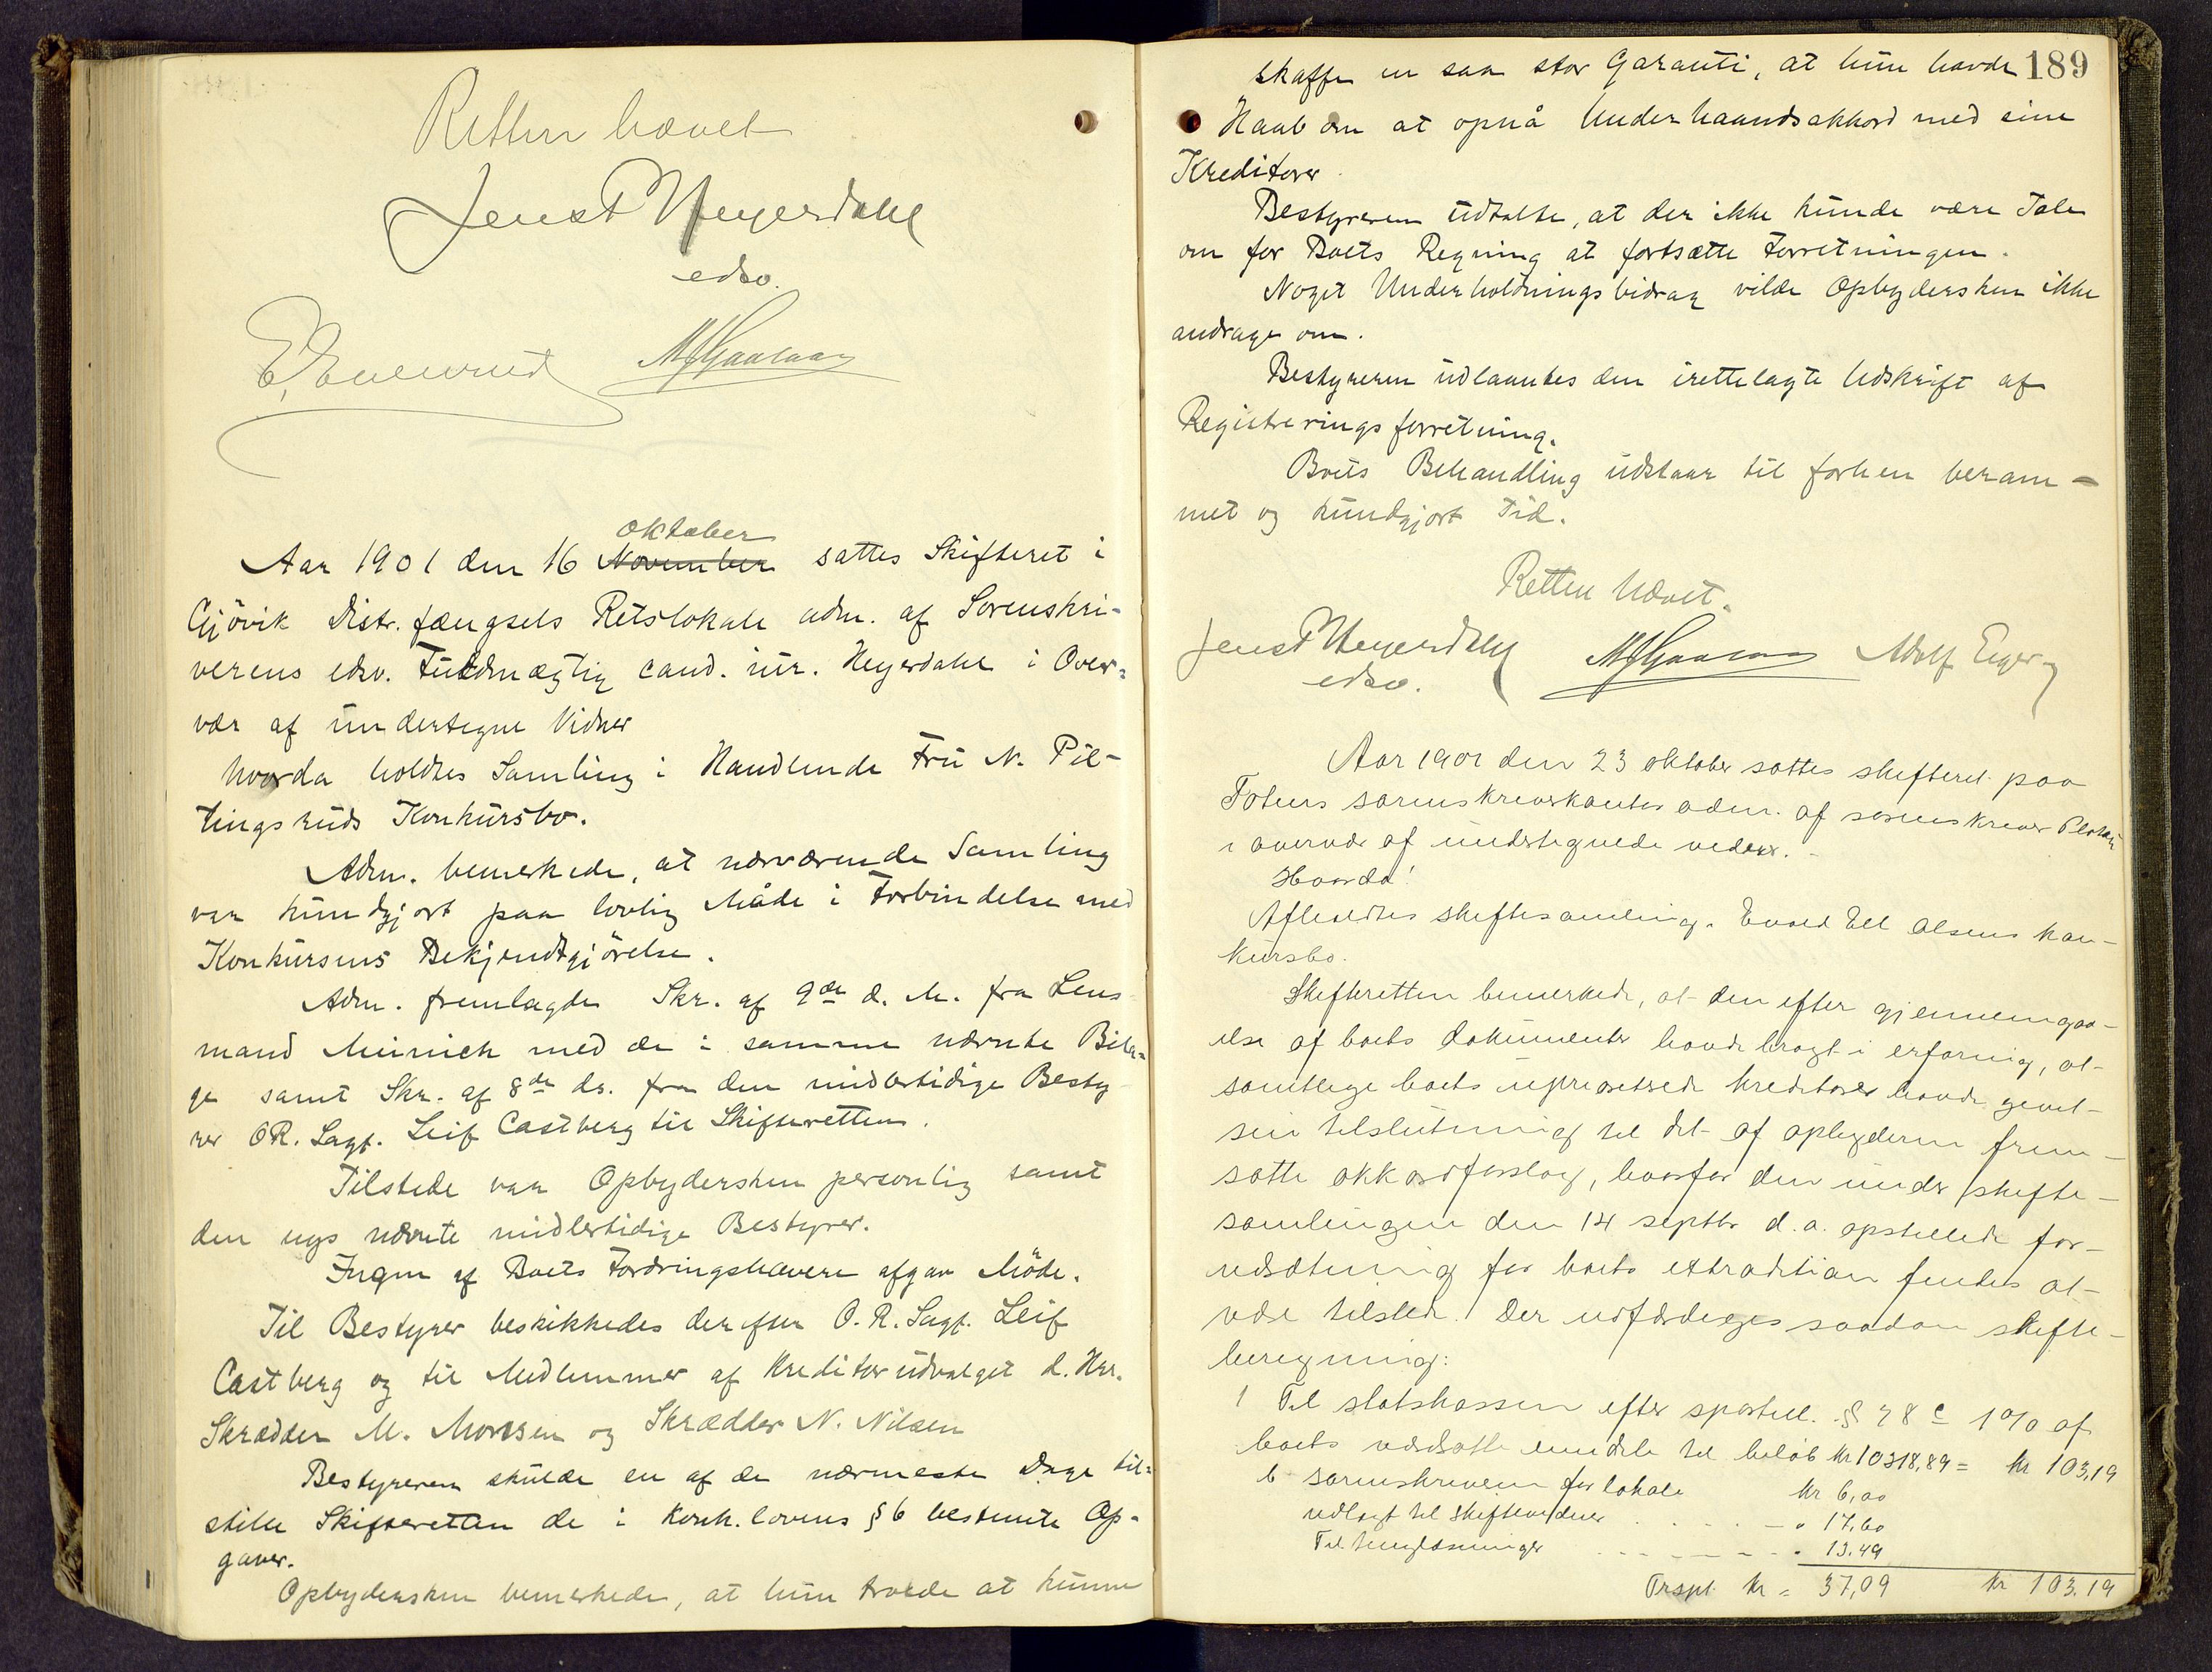 Retten hævet
Jens P Heyerdahl
edsv.
E. Evenrud
Aar 1901 den 16 November oktober sattes Skifteret i
Gjövik Distr. fængsels Retslokale adm. af Sorenskri-
verens edsv. Fuldmægtig cand. jur. Heyerdahl i Over-
vær af undertegne Vidner
hvorda holdtes Samling i Handlende Fru N. Pil-
tingsruds Konkursbo.
Adm. bemerkede, at nærværende Samling
var kundgjort paa lovlig Måde i Forbindelse med
Konkursens Bekjendtgjörelse.
Adm. fremlagde Skr. af 9de d. M. fra Lens
mand Meinich med de i samme nævnte Bila-
ge samt Skr. af 8de ds. fra den midlertidige Besty
rer OR. Sagf. Leif Castberg til Skifteretten.
Tilstede var Opbydersken personlig samt
den nys nævnte midlertidige Bestyrer.
Ingen af Boets Fordringshavere afgav Möde.
Til Bestyrer beskikkedes derefter O. R. Sagf. Leif
Castberg og til Medlemmer af Kreditorudvalget d. Hrr.
Skrædder M. Monsen og Skrædder N. Nilsen
Bestyreren skulde en af de nærmeste Dage til-
stille Skifteretten de i Konk. lovens § 6 bestemte Op-
gaver.
Opbydersken bemerkede, at hun troede at kunne
189
skaffe en saa stor Garanti, at hun havde
Haab om at opnå Underhaandsakkord med sine
Kreditorer.
Bestyreren udtalte, at der ikke kunde være Tale
om for Boets Regning at fortsætte Forretningen.
Noget Underholdningsbidrag vilde Opbydersken ikke
andrage om.
Bestyreren udlaantes den irettelagte Udskrift af
Registreringsforretning.
Boets Behandling udstaar til forhen beram-
met og kundgjort Tid.
Retten Hævet.
Jens P Heyerdahl Adolf Eger
edsv.
Aar 1901 den 23 oktober sattes skifteret paa
Totens sorenskriverkontor adm. af sorenskriver
i overvær af undertegnede vidner. -
Hvorda!
Afholdtes skiftesamling i Evald Ell Olsens kon-
kursbo.
Skifteretten bemerkede, at den efter gjennemgaa-
else af boets dokumenter havde bragt i erfaring, at
samtlige boets uprioriterede kreditorer havde givet
sin tilslutning til det af opbyderen frem-
satte akkordforslag, hvorfor den under skifte-
samlingen den 14 septbr d. a. opstillede for-
udsætning for boets extradition findes at
være tilstede. Der udfærdiges saadan skifte-
beregning:
1 Til statskassen efter sportell. § 78 c 1 % af
boets værdsatte eiendele til beløb kr 10318,89 = kr 103,19
b sorenskriveren for lokale kr 6,00
udlagt til skiftevidner . . . . - " 17,60
Til tinglæsninger - - - - " 13.49
Trspt kr = 37,09 kr 103.19